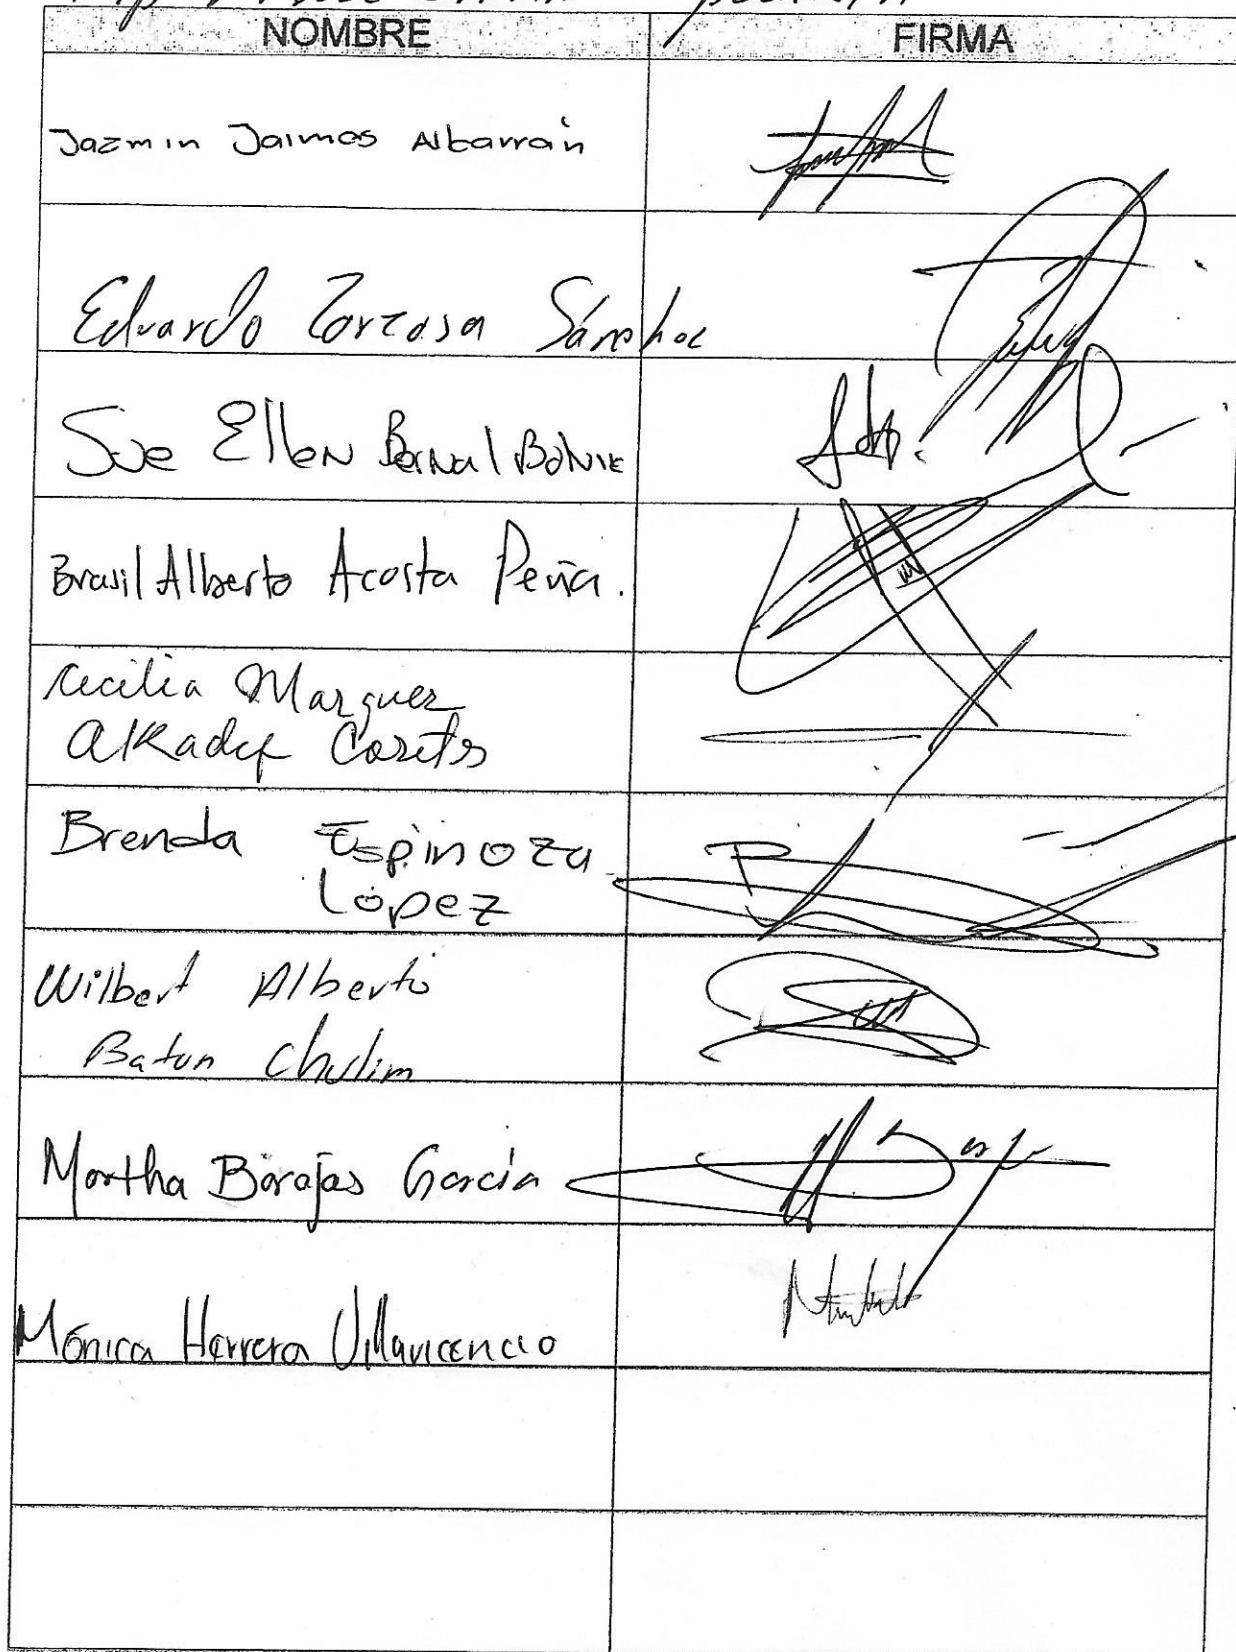 NOMBRE FIRMA
Jazmin Jaimes Albarrán
Eduardo Zarzosa Sánchez
Sue Ellen Bernal Bolnik
Brasil Alberto Acosta Peña.
Cecilia Marquez
Alkadef Cortes
Brenda Espinoza
López
Wilbert Alberto
Batun Chulim
Martha Barajas García
Mónica Herrera Villavicencio